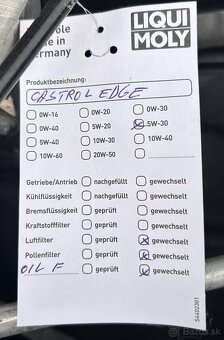 ole
de in
ermany
LIQUI
MOLY
Produktbezeichnung:
CASTROL EDGE
0W-16 0W-20 0W-30
0W-40 5W-20 5W-30
5W-40 10W-30 10W-40
10W-60 20W-50
Getriebe/Antrieb nachgefüllt gewechselt
Kühlflüssigkeit nachgefüllt gewechselt
Bremsflüssigkeit geprüft gewechselt
Kraftstofffilter geprüft gewechselt
Luftfilter geprüft gewechselt
Pollenfilter geprüft gewechselt
OIL F geprüft gewechselt
54402301
Bazos.sk